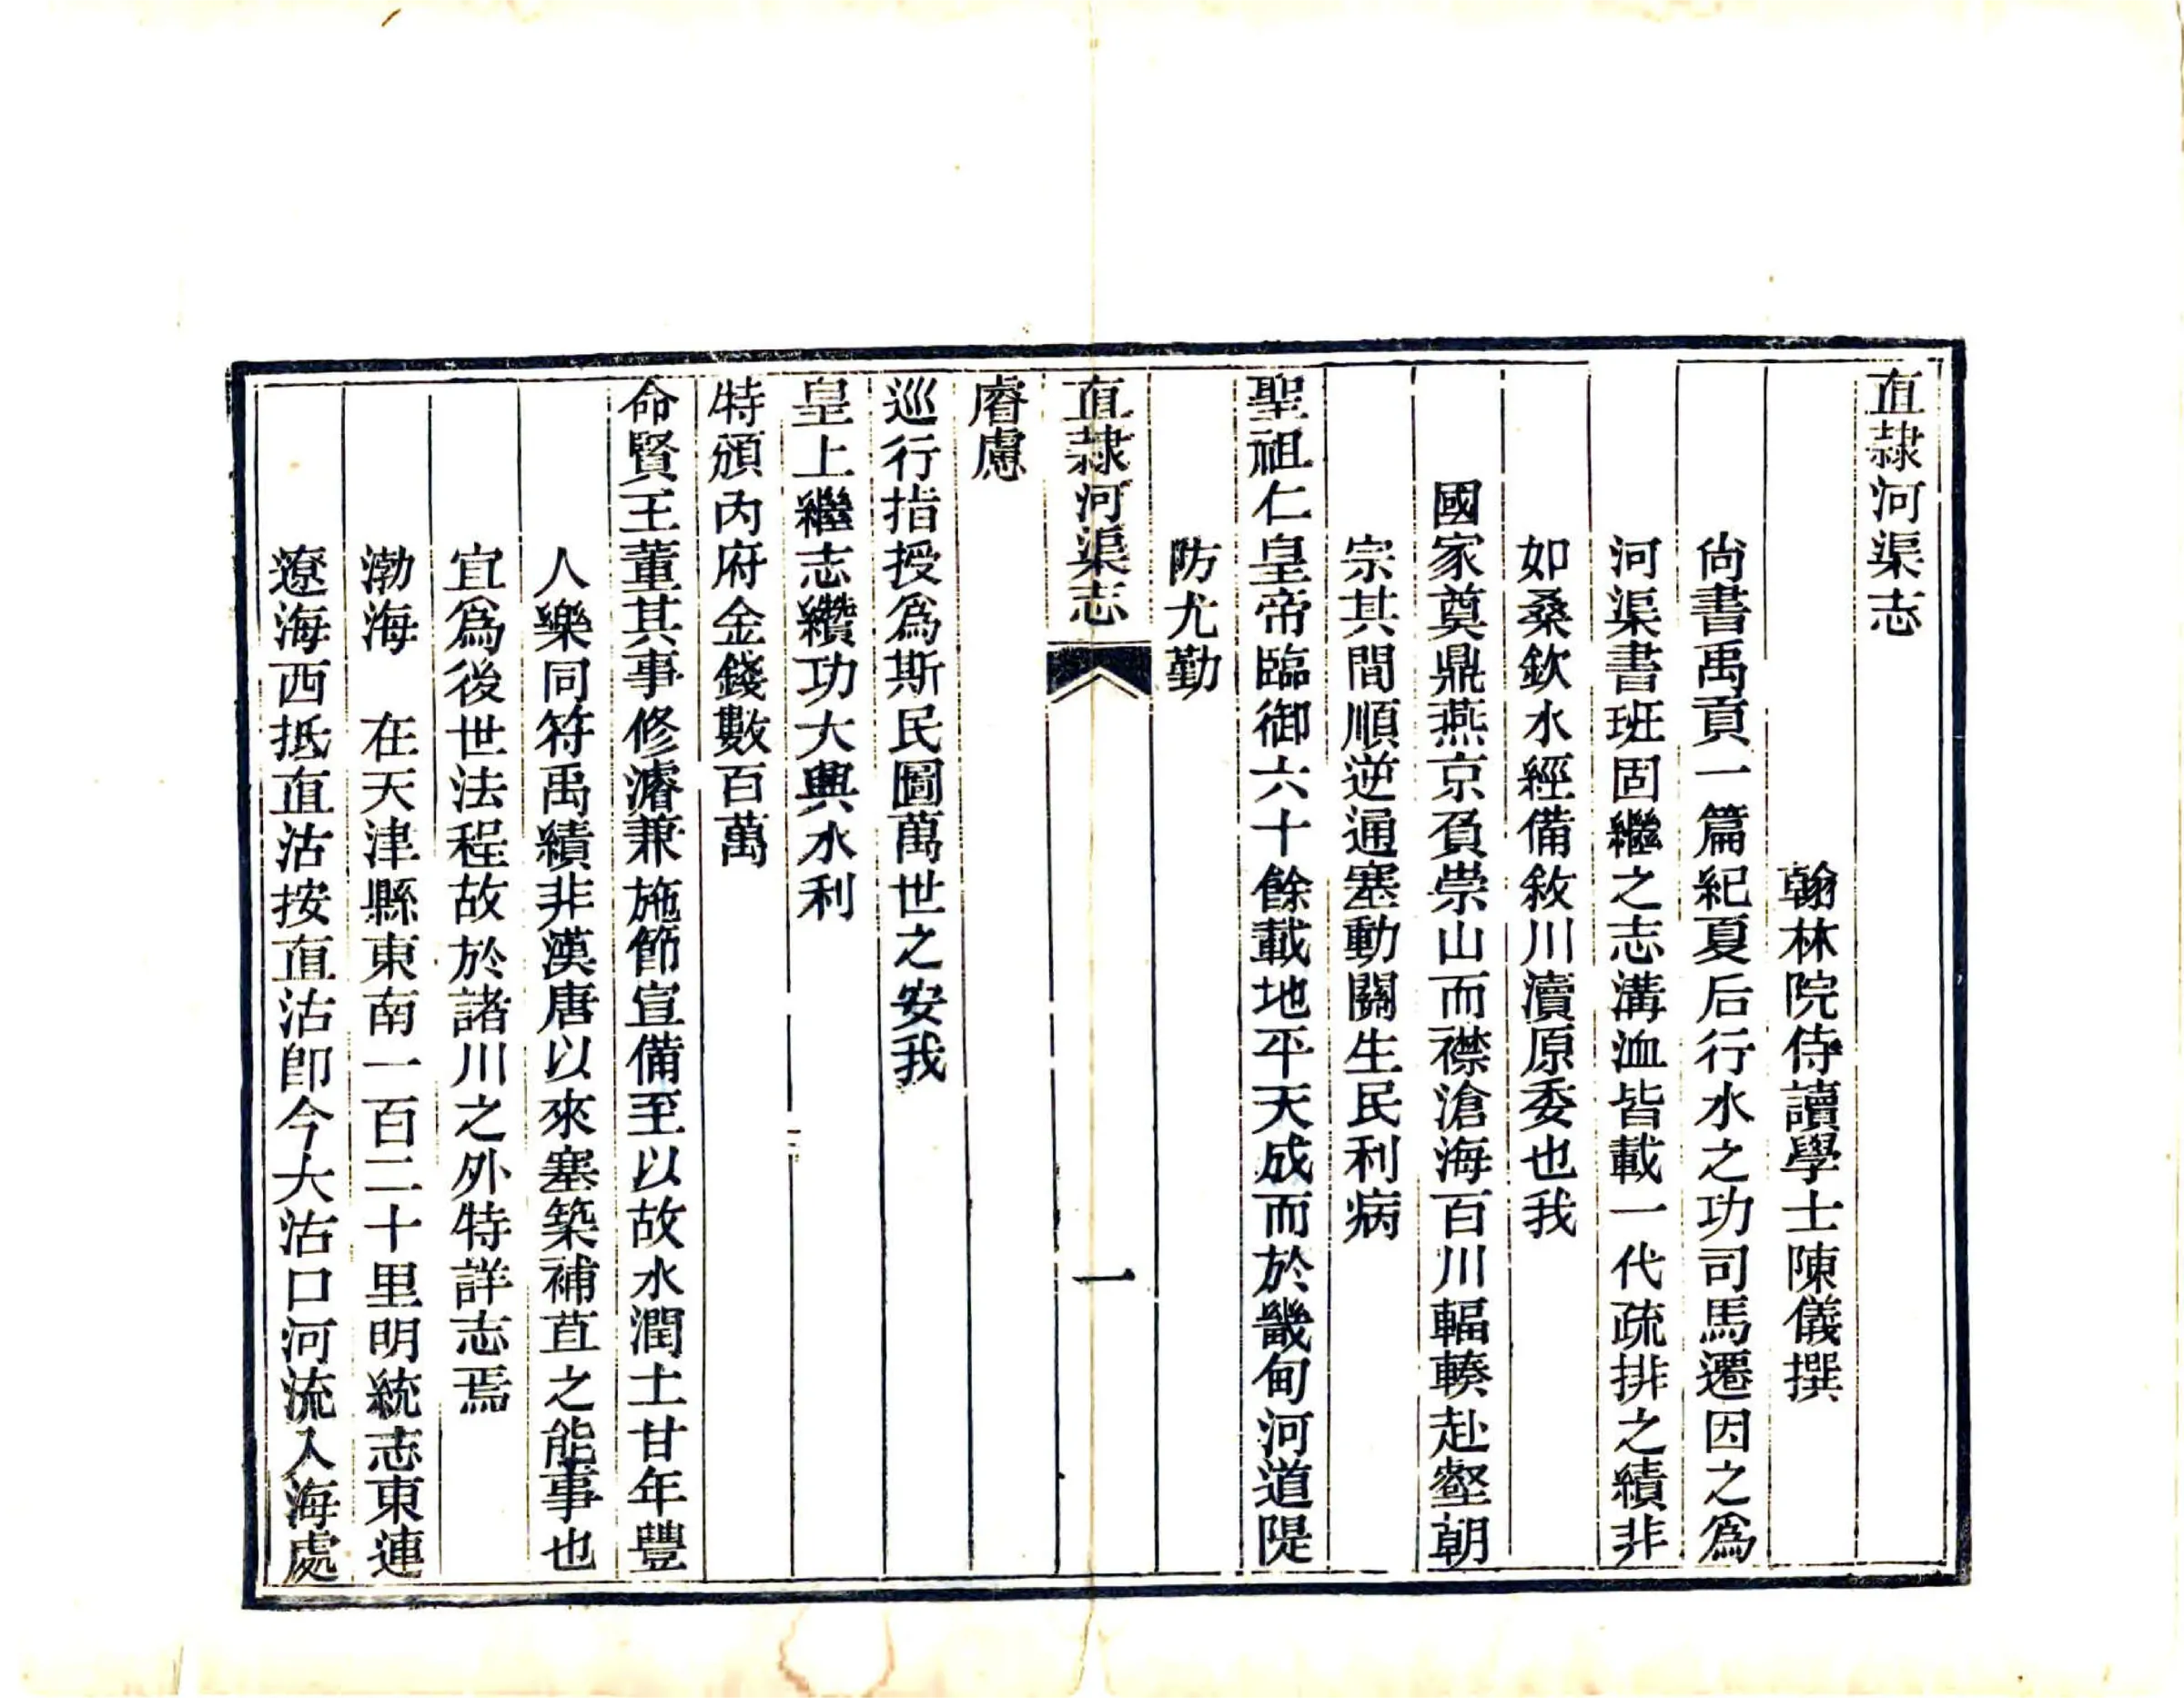 直隷河渠志
翰林院侍讀學士陳儀撰
尙書禹貢一篇紀夏后行水之功司馬遷因之爲
河渠書班固繼之志溝洫皆載一代疏排之績非
如桑欽水經備敘川瀆原委也我
國家奠鼎燕京負崇山而襟滄海百川輻輳赴壑朝
宗其間順逆通塞動關生民利病
聖祖仁皇帝臨御六十餘載地平天成而於畿甸河道隄
防尤勤
直隷河渠志
一
睿慮
巡行指授爲斯民圖萬世之安我
皇上繼志纘功大興水利
特頒內府金錢數百萬
命賢王董其事修濬兼施節宣備至以故水潤土甘年豐
人樂同符禹績非漢唐以來塞築補苴之能事也
宜爲後世法程故於諸川之外特詳志焉
渤海　在天津縣東南一百二十里明統志東連
遼海西抵直沽按直沽卽今大沽口河流入海處